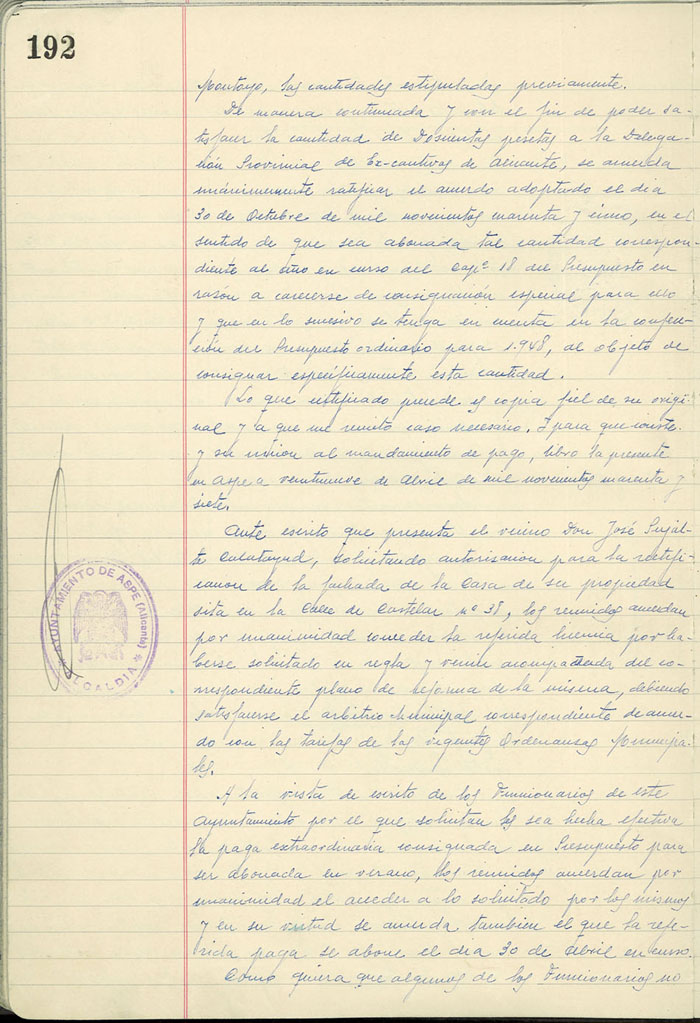 192
Montoyo, las cantidades estipuladas previamente.
De manera continuada y con el fin de poder sa-
tisfacer la cantidad de Doscientas pesetas a la Delega-
ción Provincial de Ex-cautivos de Alicante, se acuerda
unánimemente ratificar el acuerdo adoptado el dia
30 de Octubre de mil novecientos cuarenta y cinco, en el
sentido de que sea abonada tal cantidad correspon-
diente al año en curso del Capº 18 del Presupuesto en
razón a carecerse de consignación especial para ello
y que en lo sucesivo se tenga en cuenta en la confec-
ción del Presupuesto ordinario para 1.948, al objeto de
consignar especificamente esta cantidad.
Lo que certificado precede es copia fiel de su origi-
nal y a que me remito caso necesario. Y para que conste
y su unión al mandamiento de pago, libro la presente
en Aspe a veintinueve de Abril de mil novecientos cuarenta y
siete.
Ante escrito que presenta el vecino Don José Pujál-
te Calatayud, solicitando autorización para la rectifi-
cación de la fachada de la Casa de su propiedad
sita en la Calle de Castelar nº 38, los reunidos acuerdan
por unanimidad conceder la referida licencia por ha-
berse solicitado en regla y venir acompañada del co-
rrespondiente plano de reforma de la misma, debiendo
satisfacerse el arbitrio Municipal correspondiente de acuer-
do con las tarifas de las vigentes Ordenanzas Municipa-
les.
A la vista de escrito de los Funcionarios de este
Ayuntamiento por el que solicitan les sea hecha efectiva
la paga extraordinaria consignada en Presupuesto para
ser abonada en verano, los reunidos acuerdan por
unanimidad el acceder a lo solicitado por los mismos
y en su virtud se acuerda tambien el que la refe-
rida paga se abone el dia 30 de Abril en curso.
Como quiera que algunos de los Funcionarios no
AYUNTAMIENTO DE ASPE (Alicante)
* ALCALDIA *